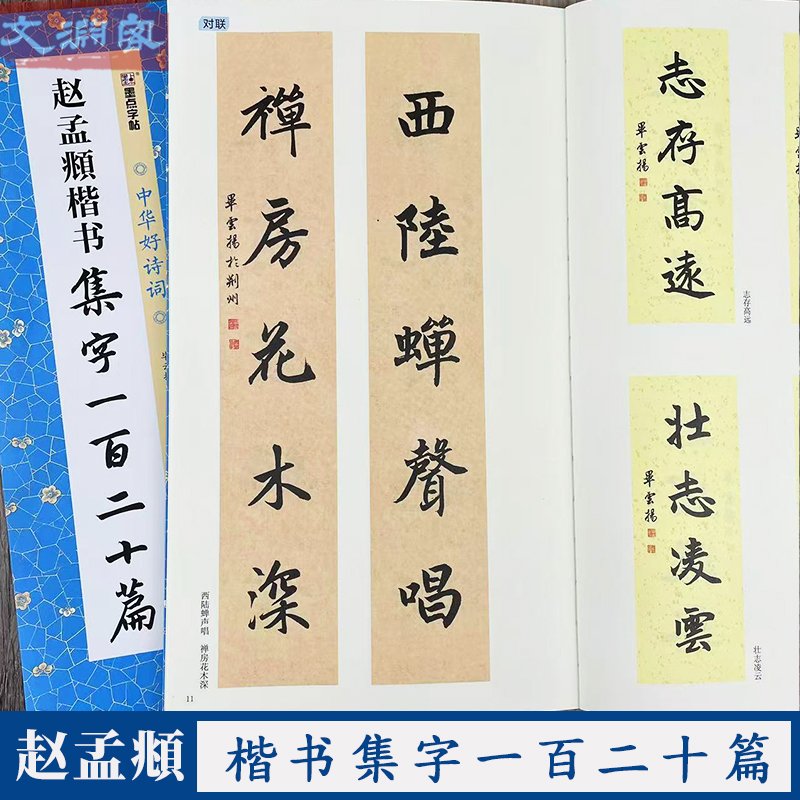 文渊阁
墨点字帖
中华好诗词
赵孟頫楷书集字一百二十篇
对联
西陸蟬聲唱
禪房花木深
畢雲揚於荆州
西陆蝉声唱 禅房花木深
11
志存高遠
畢雲揚
志存高远
壮志凌雲
畢雲揚
壮志凌云
赵孟頫 楷书集字一百二十篇